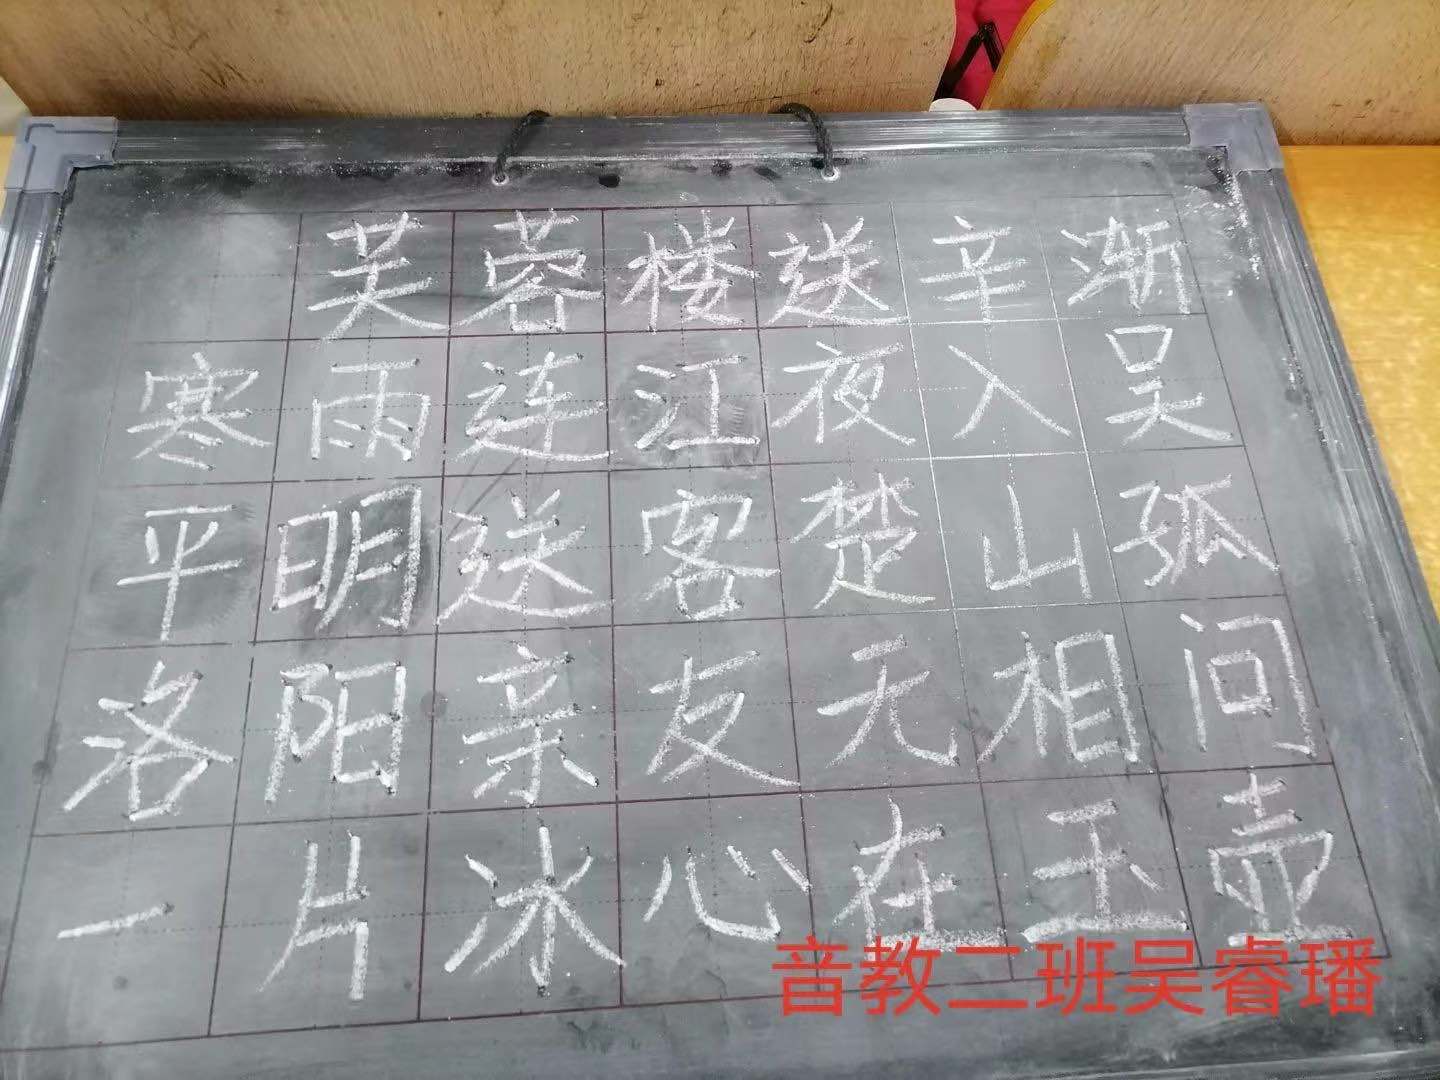 芙蓉楼送辛渐
寒雨连江夜入吴
平明送客楚山孤
洛阳亲友无相问
一片冰心在玉壶
音教二班吴睿璠